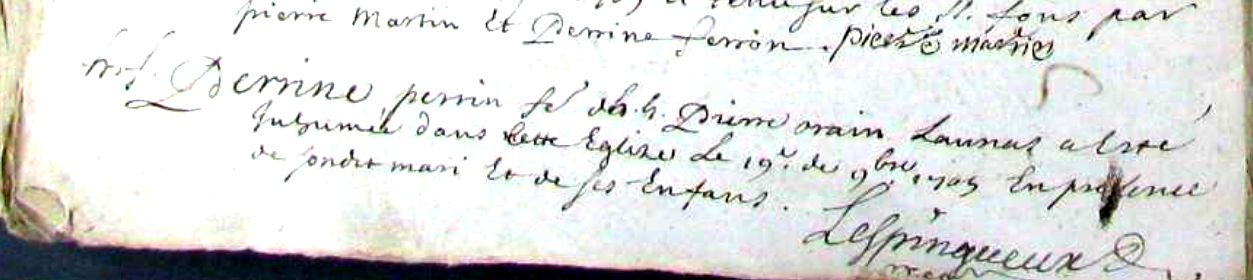 et tenu sur les SS. fons par
pierre Martin Et Perrine ferron. pierre martin
Perrine perrin fe de h. h. Pierre orain Launay a Este
Inhumée dans Cette Eglise Le 19e. de 9bre. 1705 En presence
de sondit mari Et de ses Enfans.
Lespingueux